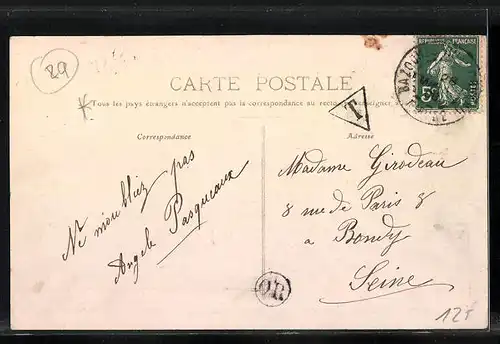 29
RÉPUBLIQUE FRANÇAISE
5c
POSTES
CARTE POSTALE
Tous les pays étrangers n'acceptent pas la correspondance au recto
T
Correspondance
Adresse
Ne m'oubliez pas
Angele Pasqueaux
Madame Girodeau
8 rue de Paris 8
a Bondy
Seine
OR
12f